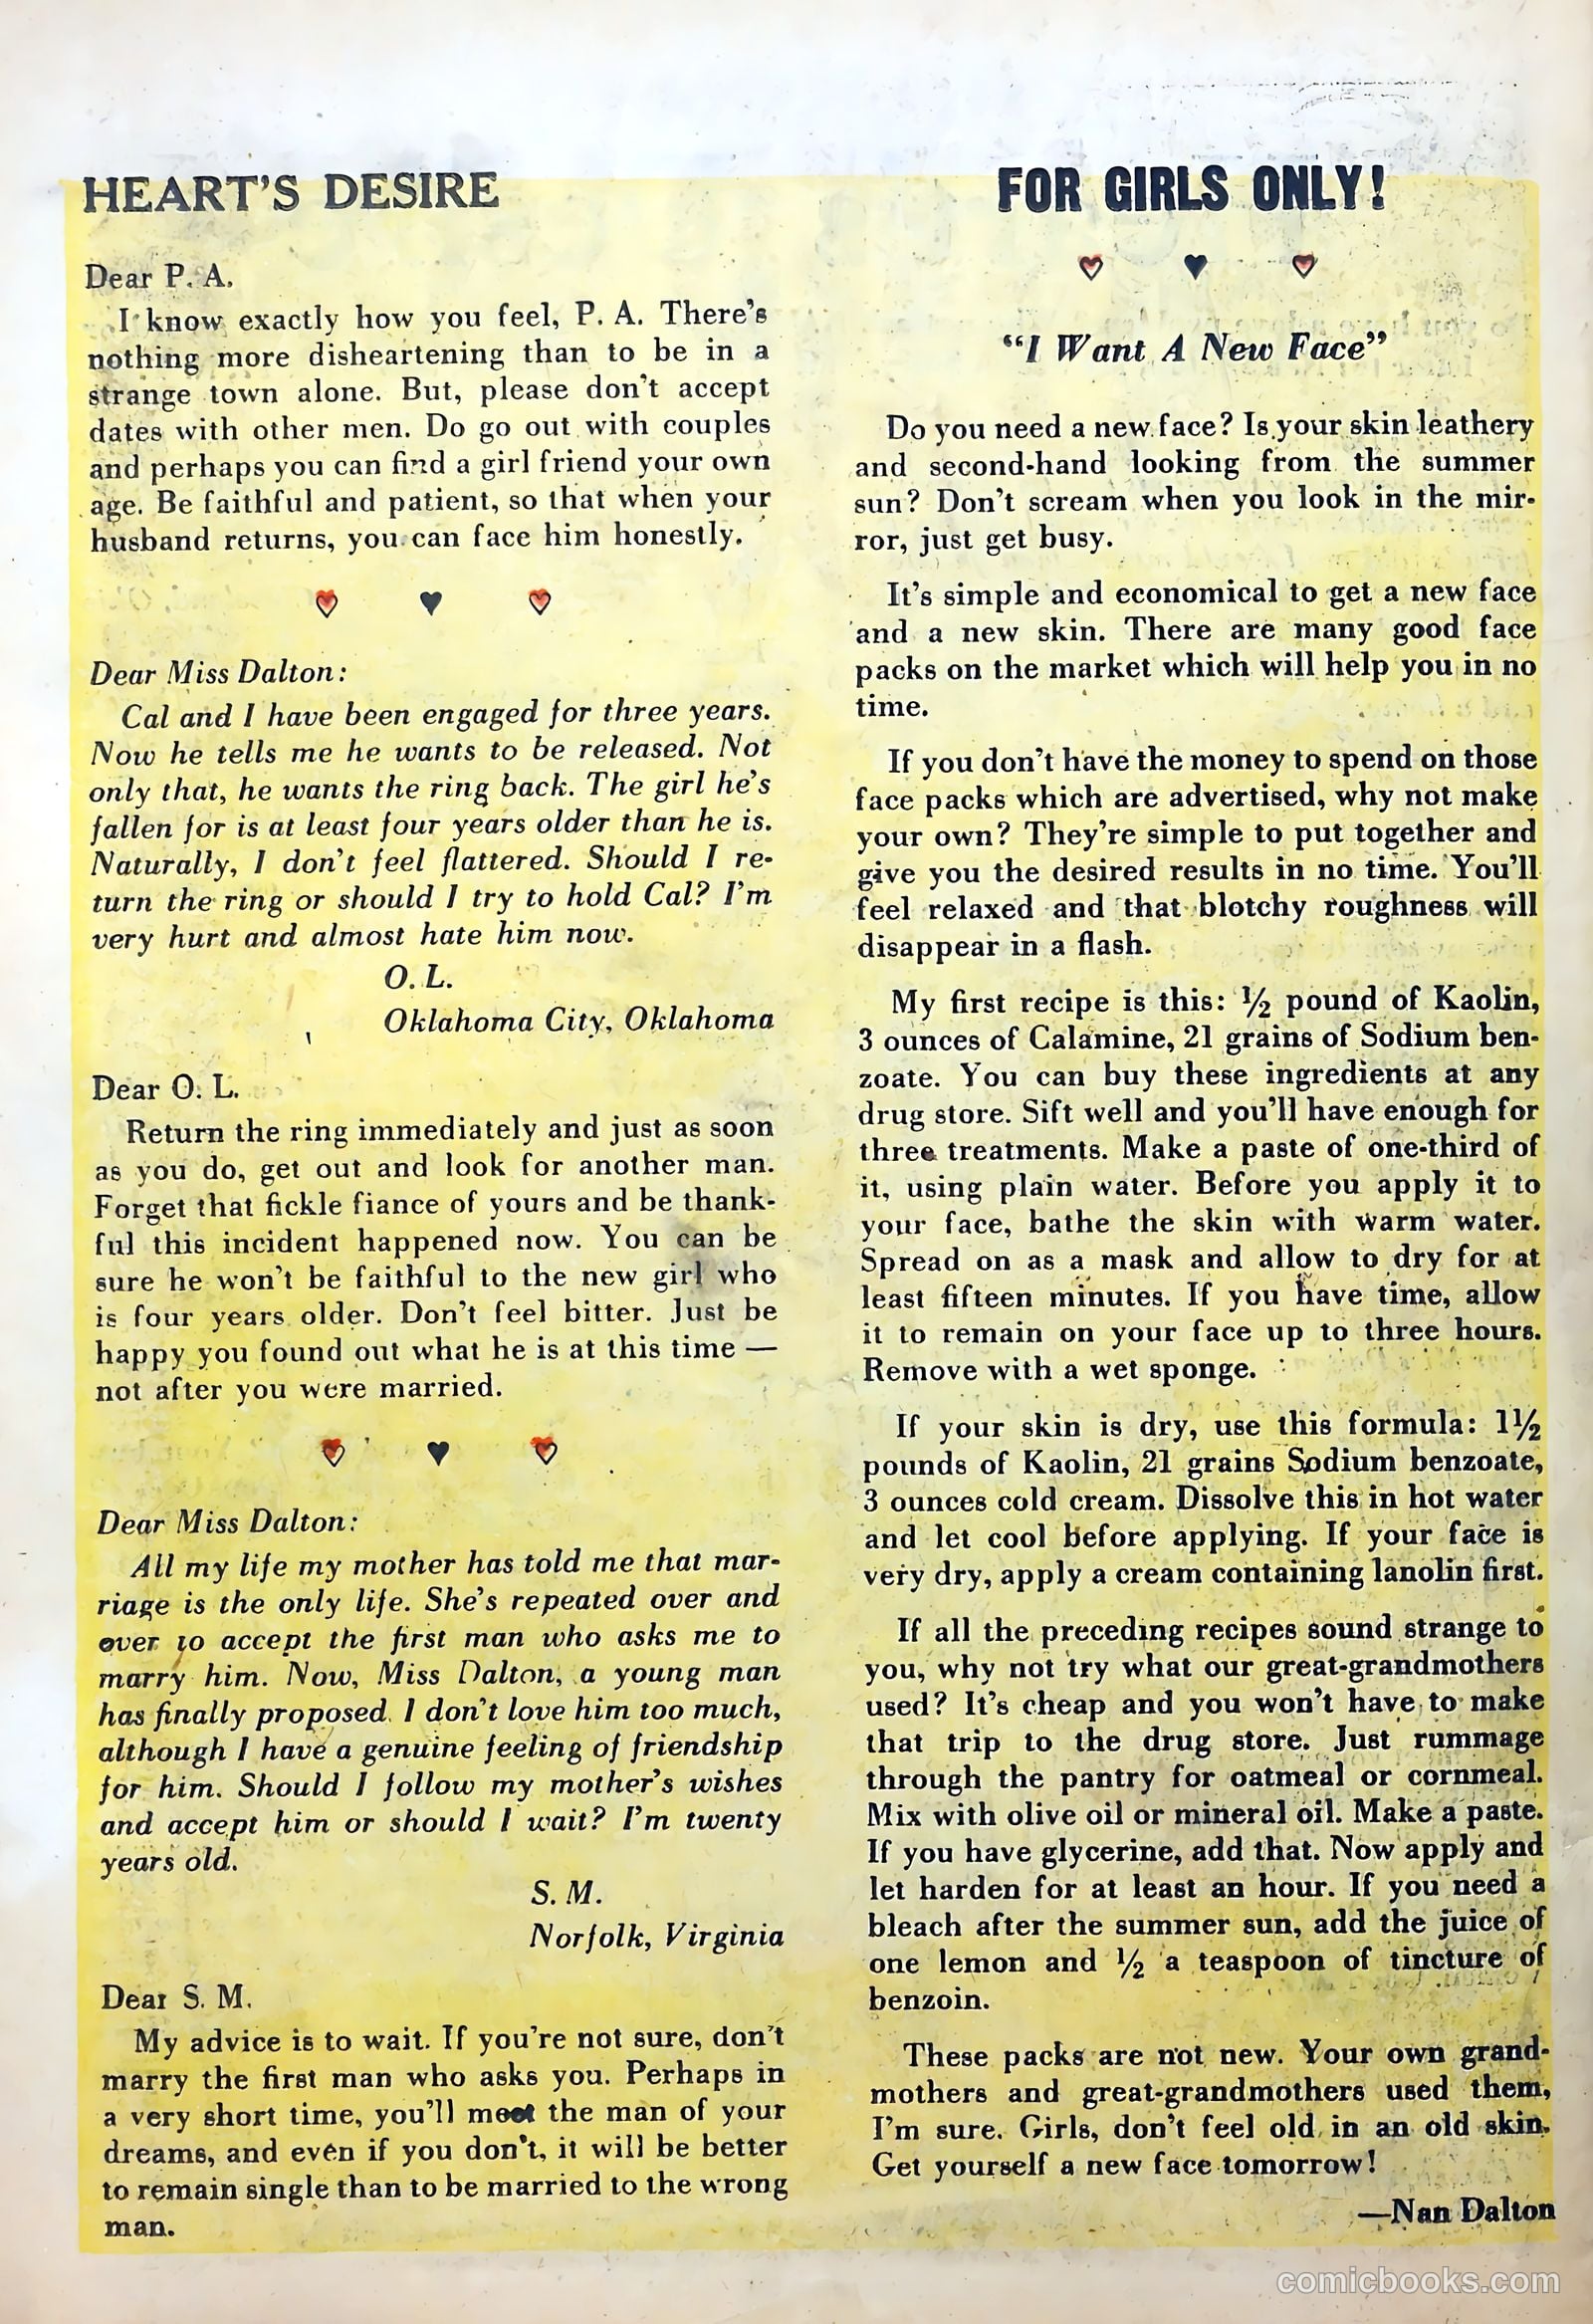 HEART'S DESIRE
Dear P. A.
I know exactly how you feel, P. A. There's
nothing more disheartening than to be in a
strange town alone. But, please don't accept
dates with other men. Do go out with couples
and perhaps you can find a girl friend your own
age. Be faithful and patient, so that when your
husband returns, you can face him honestly.
Dear Miss Dalton:
Cal and I have been engaged for three years.
Now he tells me he wants to be released. Not
only that, he wants the ring back. The girl he's
fallen for is at least four years older than he is.
Naturally, I don't feel flattered. Should I re-
turn the ring or should I try to hold Cal? I'm
very hurt and almost hate him now.
O. L.
Oklahoma City, Oklahoma
Dear O. L.
Return the ring immediately and just as soon
as you do, get out and look for another man.
Forget that fickle fiance of yours and be thank-
ful this incident happened now. You can be
sure he won't be faithful to the new girl who
is four years older. Don't feel bitter. Just be
happy you found out what he is at this time —
not after you were married.
Dear Miss Dalton:
All my life my mother has told me that mar-
riage is the only life. She's repeated over and
over to accept the first man who asks me to
marry him. Now, Miss Dalton, a young man
has finally proposed. I don't love him too much,
although I have a genuine feeling of friendship
for him. Should I follow my mother's wishes
and accept him or should I wait? I'm twenty
years old.
S. M.
Norfolk, Virginia
Dear S. M.
My advice is to wait. If you're not sure, don't
marry the first man who asks you. Perhaps in
a very short time, you'll meet the man of your
dreams, and even if you don't, it will be better
to remain single than to be married to the wrong
man.
FOR GIRLS ONLY!
"I Want A New Face"
Do you need a new face? Is your skin leathery
and second-hand looking from the summer
sun? Don't scream when you look in the mir-
ror, just get busy.
It's simple and economical to get a new face
and a new skin. There are many good face
packs on the market which will help you in no
time.
If you don't have the money to spend on those
face packs which are advertised, why not make
your own? They're simple to put together and
give you the desired results in no time. You'll
feel relaxed and that blotchy roughness will
disappear in a flash.
My first recipe is this: ½ pound of Kaolin,
3 ounces of Calamine, 21 grains of Sodium ben-
zoate. You can buy these ingredients at any
drug store. Sift well and you'll have enough for
three treatments. Make a paste of one-third of
it, using plain water. Before you apply it to
your face, bathe the skin with warm water.
Spread on as a mask and allow to dry for at
least fifteen minutes. If you have time, allow
it to remain on your face up to three hours.
Remove with a wet sponge.
If your skin is dry, use this formula: 1½
pounds of Kaolin, 21 grains Sodium benzoate,
3 ounces cold cream. Dissolve this in hot water
and let cool before applying. If your face is
very dry, apply a cream containing lanolin first.
If all the preceding recipes sound strange to
you, why not try what our great-grandmothers
used? It's cheap and you won't have to make
that trip to the drug store. Just rummage
through the pantry for oatmeal or cornmeal.
Mix with olive oil or mineral oil. Make a paste.
If you have glycerine, add that. Now apply and
let harden for at least an hour. If you need a
bleach after the summer sun, add the juice of
one lemon and ½ a teaspoon of tincture of
benzoin.
These packs are not new. Your own grand-
mothers and great-grandmothers used them,
I'm sure. Girls, don't feel old in an old skin.
Get yourself a new face tomorrow!
—Nan Dalton
comicbooks.com